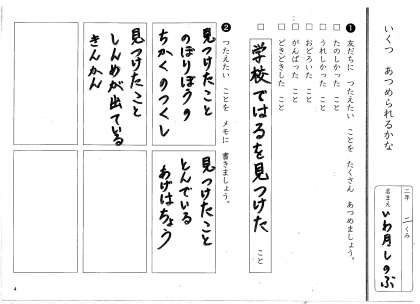 いくつ あつめられるかな
二年 二くみ
名まえ いわ月しのぶ
❶ 友だちに つたえたい ことを たくさん あつめましょう。
□ たのしかった こと
□ うれしかった こと
□ おどろいた こと
□ がんばった こと
□ どきどきした こと
学校ではるを見つけた こと
❷ つたえたい ことを メモに 書きましょう。
見つけたこと
のぼりぼうの
ちかくのつくし
見つけたこと
しんめが出ている
きんかん
見つけたこと
とんでいる
あげはちょう
4